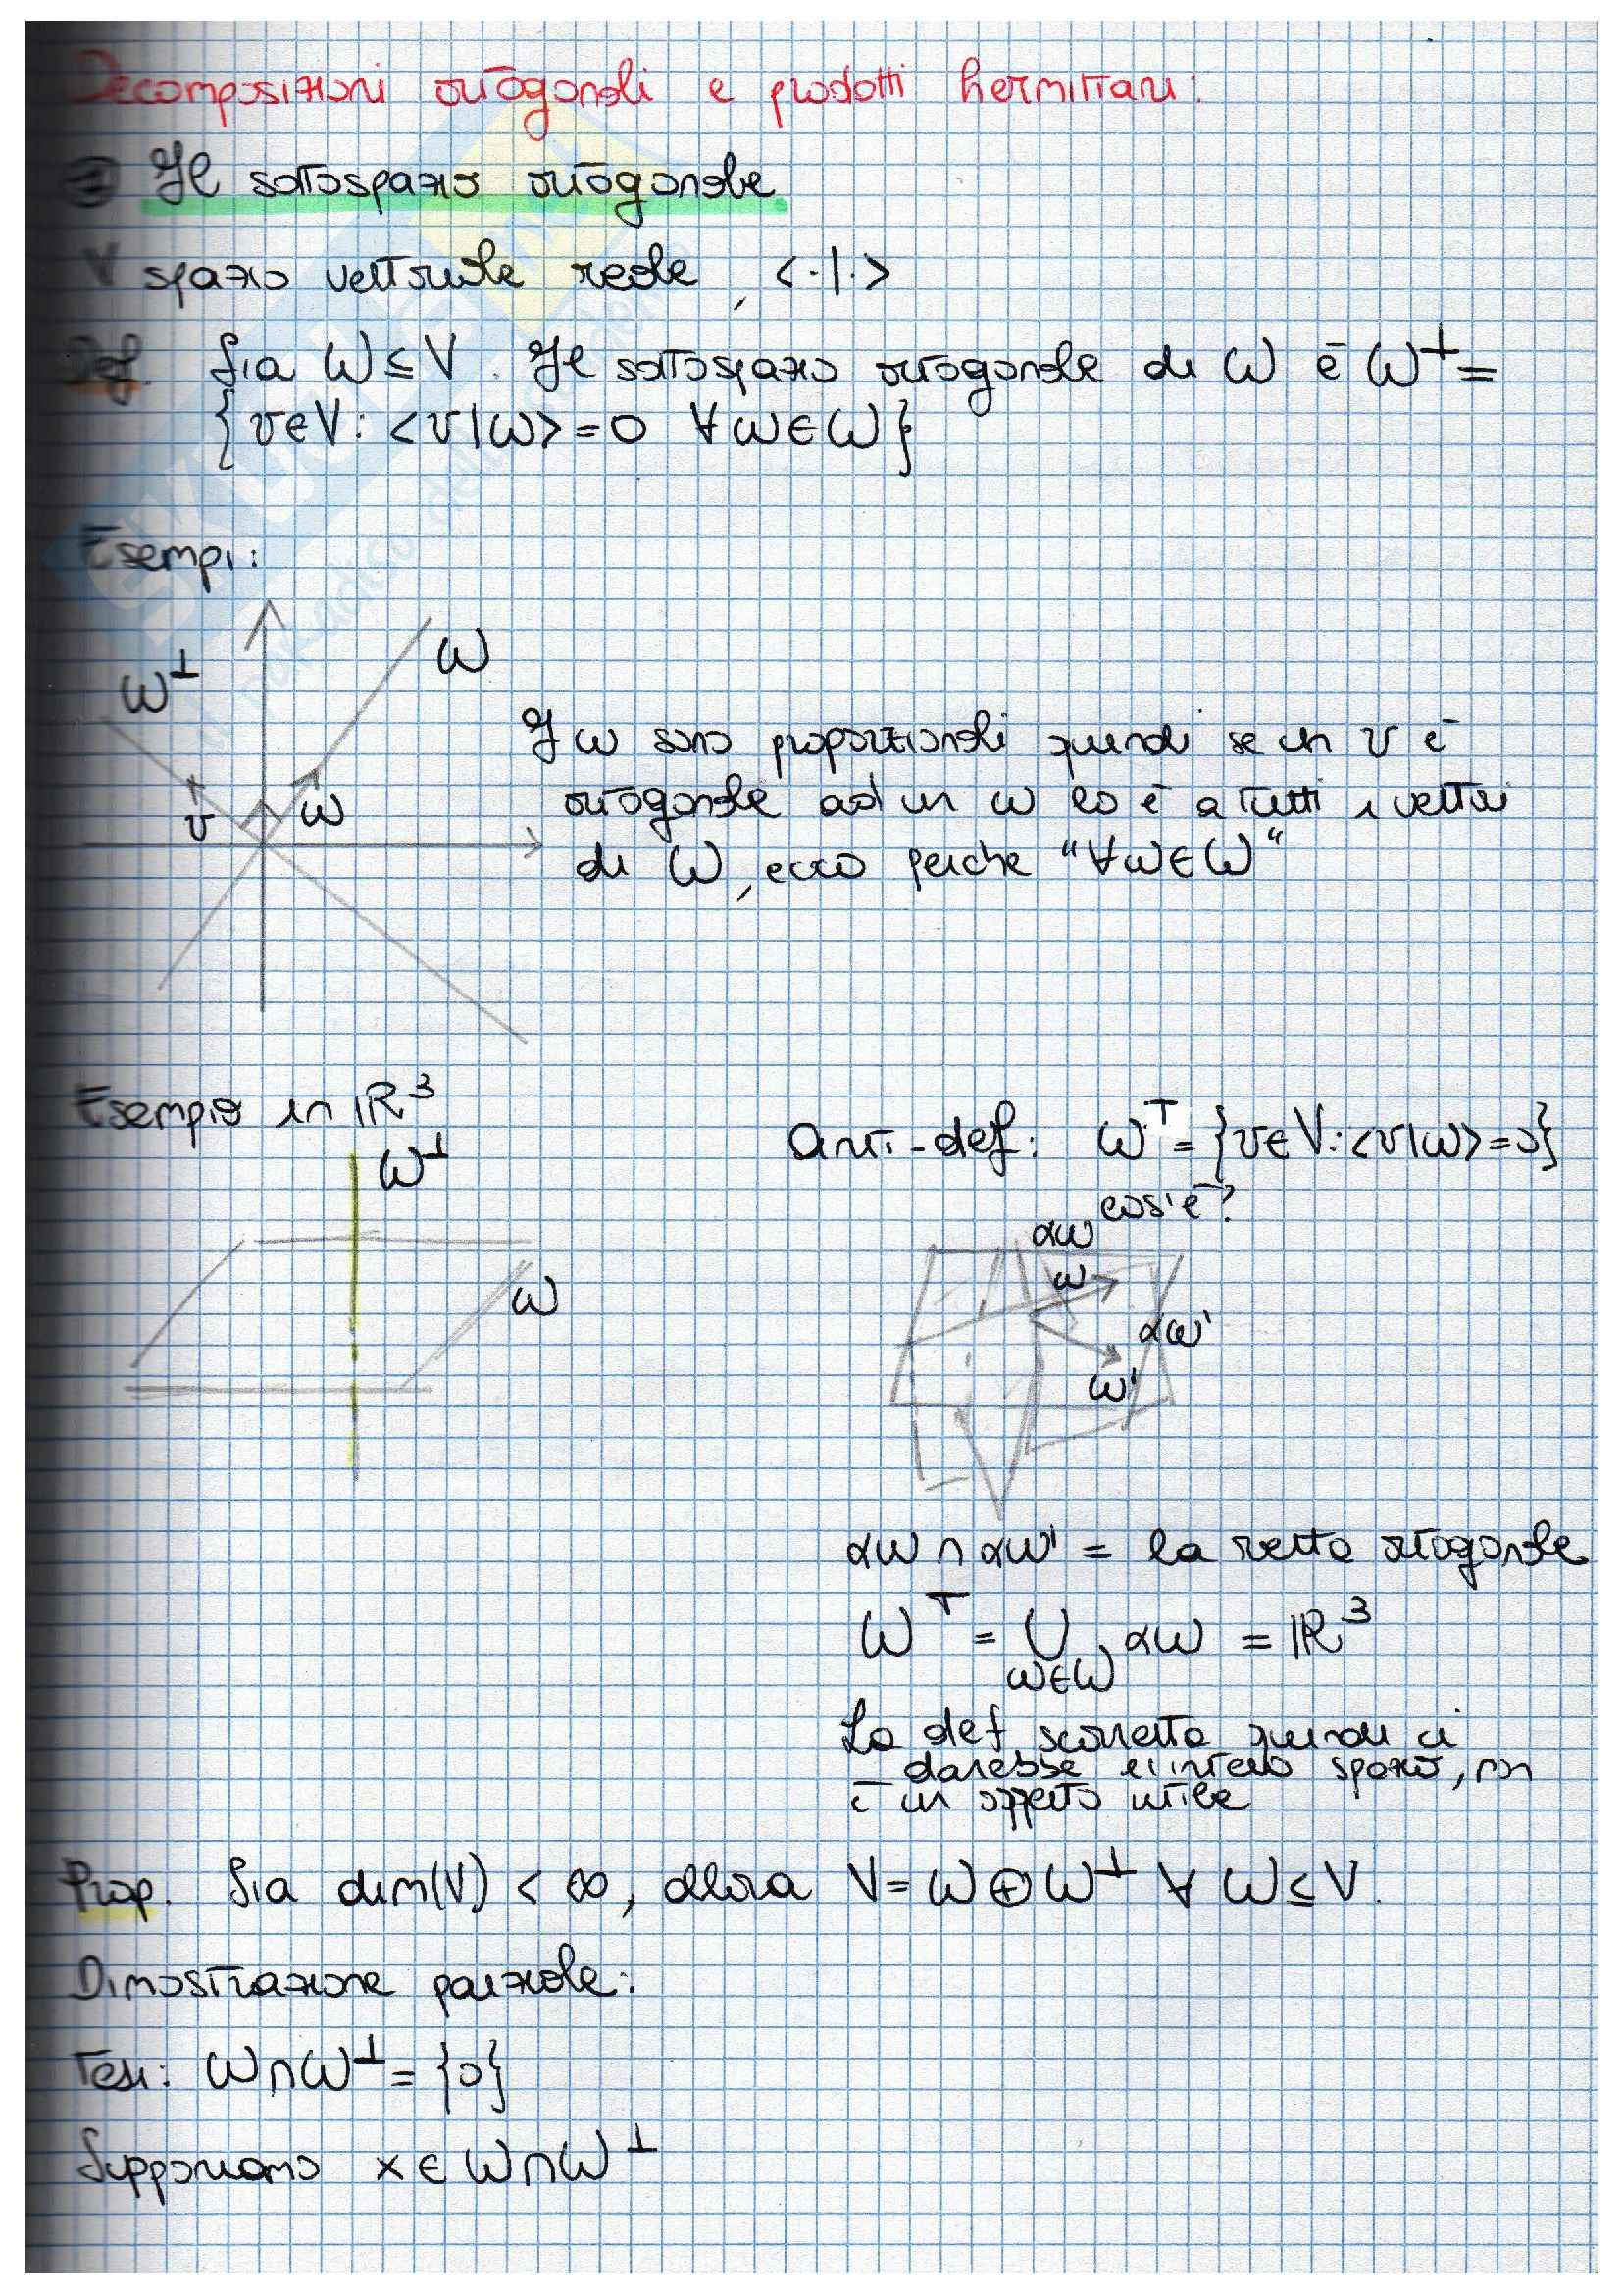 Decomposizioni ortogonali e prodotti hermitiani:
Il sottospazio ortogonale
V spazio vettoriale reale, <·|·>
Def. Sia W ≤ V. Il sottospazio ortogonale di W è W⊥ =
{v∈V: <v|w> = 0 ∀w∈W}
Esempi:
W⊥
W
v
w
I w sono proporzionali quindi se un v è
ortogonale ad un w lo è a tutti i vettori
di W, ecco perche "∀w∈W"
Esempio in ℝ³
W⊥
W
Anti-def: W^T = {v∈V: <v|w> = 0}
cos'è?
αw
w
αw'
w'
αw ∩ αw' = la retta ortogonale
W^T = ∪ αw = ℝ³
w∈W
La def scorretta quindi ci
darebbe l'intero spazio, non
è un oggetto utile
Prop. Sia dim(V) < ∞, allora V = W⊕W⊥ ∀ W ≤ V.
Dimostrazione parziale:
Tesi: W∩W⊥ = {0}
Supponiamo x ∈ W∩W⊥